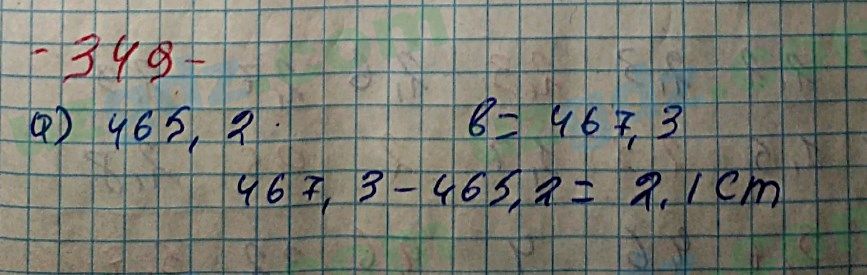 -349-
a) 465,2 b= 467,3
467,3-465,2= 2,1 cm